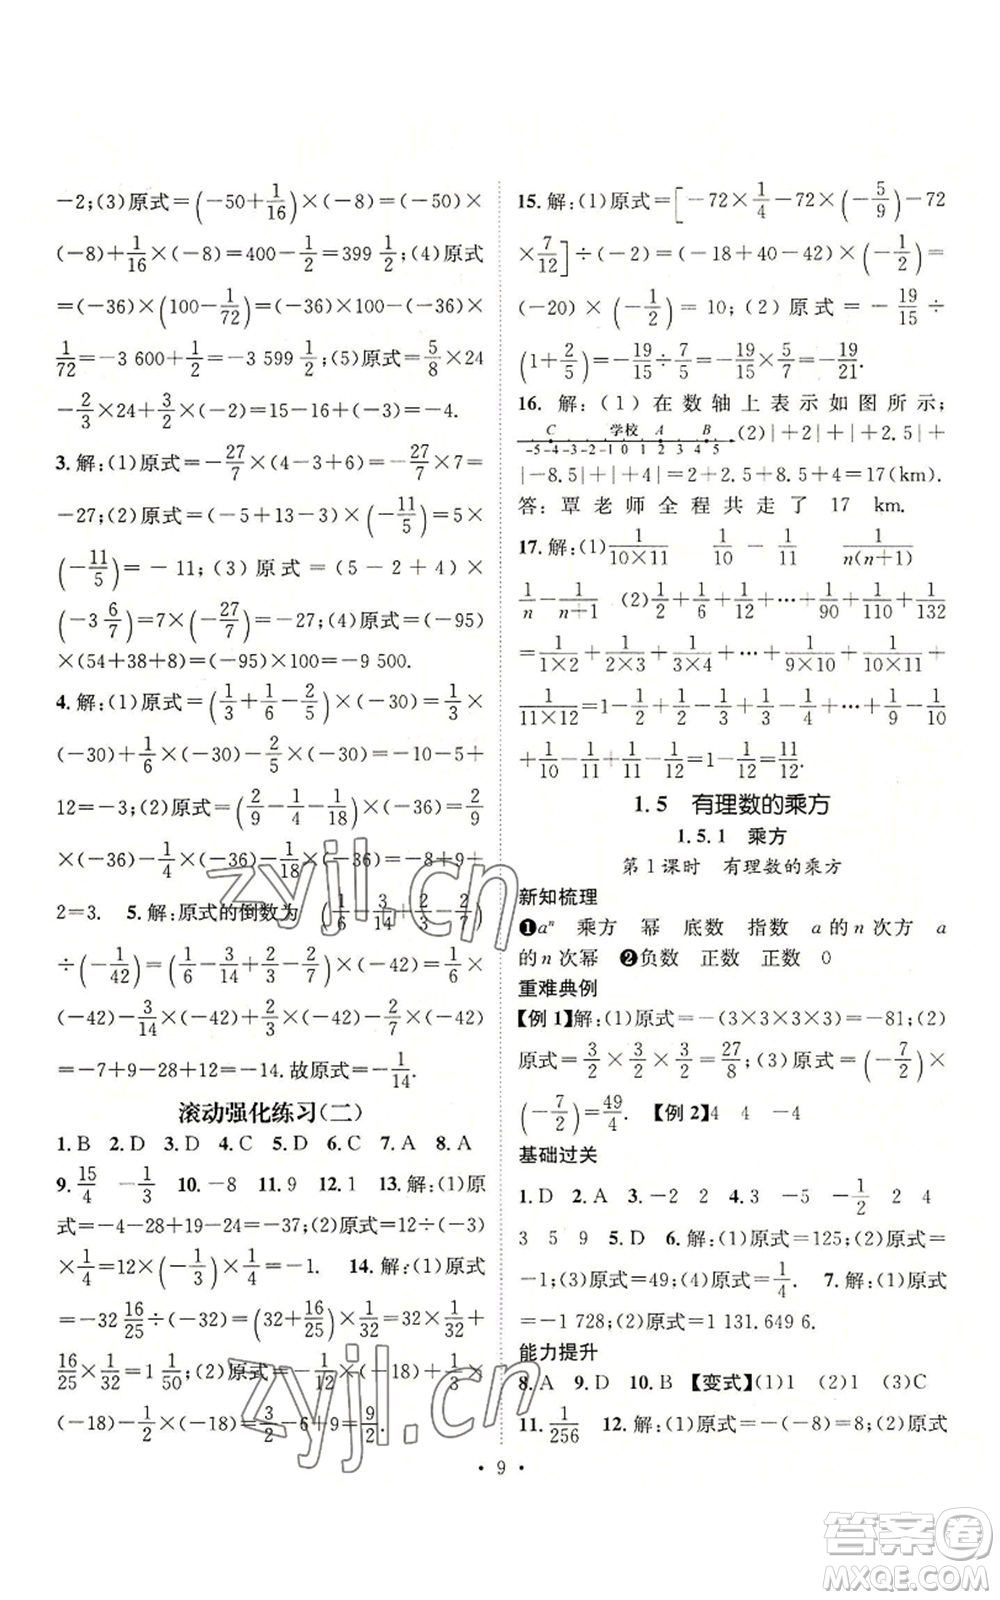 -2;(3)原式=(-50+1/16)×(-8)=(-50)×
(-8)+1/16×(-8)=400-1/2=399 1/2;(4)原式
=(-36)×(100-1/72)=(-36)×100-(-36)×
1/72=-3 600+1/2=-3 599 1/2;(5)原式=5/8×24
-2/3×24+3/2×(-4)=15-16+(-3)=-4.
3.解:(1)原式=-27/7×(4-3+6)=-27/7×7=
-27;(2)原式=(-5+13-3)×(-11/5)=5×
(-11/5)=-11;(3)原式=(5-2+4)×
(-3 6/7)=7×(-27/7)=-27;(4)原式=(-95)
×(54+38+8)=(-95)×100=-9 500.
4.解:(1)原式=(1/3+1/6-2/5)×(-30)=1/3×
(-30)+1/6×(-30)-2/5×(-30)=-10-5+
12=-3;(2)原式=(2/9-1/4-1/18)×(-36)=2/9
×(-36)-1/4×(-36)-1/18×(-36)=-8+9+
2=3. 5.解:原式的倒数为(1/6-3/14+2/3-2/7)
÷(-1/42)=(1/6-3/14+2/3-2/7)×(-42)=1/6×
(-42)-3/14×(-42)+2/3×(-42)-2/7×(-42)
=-7+9-28+12=-14.故原式=-1/14.
滚动强化练习(二)
1.B 2.D 3.D 4.C 5.D 6.C 7.A 8.A
9.15/4 -1/3 10.-8 11.9 12.1 13.解:(1)原
式=-4-28+19-24=-37;(2)原式=12÷(-3)
×1/4=12×(-1/3)×1/4=-1. 14.解:(1)原式
=-32 16/25÷(-32)=(32+16/25)×1/32=32×1/32+
16/25×1/32=1 1/50;(2)原式=-1/12×(-18)+1/3×
(-18)-1/2×(-18)=3/2-6+9=9/2.
15.解:(1)原式=[-72×1/4-72×(-5/9)-72
×7/12]÷(-2)=(-18+40-42)×(-1/2)=
(-20)×(-1/2)=10;(2)原式=-19/15÷
(1+2/5)=-19/15÷7/5=-19/15×5/7=-19/21.
16.解:(1)在数轴上表示如图所示;
C 学校 A B
-5-4-3-2-1 0 1 2 3 4 5 (2)|+2|+|+2.5|+
|-8.5|+|+4|=2+2.5+8.5+4=17(km).
答:覃老师全程共走了 17 km.
17.解:(1)1/(10×11) 1/10-1/11 1/n(n+1)
1/n-1/(n+1) (2)1/2+1/6+1/12+…+1/90+1/110+1/132
=1/(1×2)+1/(2×3)+1/(3×4)+…+1/(9×10)+1/(10×11)+
1/(11×12)=1-1/2+1/2-1/3+1/3-1/4+…+1/9-1/10
+1/10-1/11+1/11-1/12=1-1/12=11/12.
1.5 有理数的乘方
1.5.1 乘方
第1课时 有理数的乘方
新知梳理
❶aⁿ 乘方 幂 底数 指数 a的n次方 a
的n次幂 ❷负数 正数 正数 0
重难典例
【例1】解:(1)原式=-(3×3×3×3)=-81;(2)
原式=3/2×3/2×3/2=27/8;(3)原式=(-7/2)×
(-7/2)=49/4. 【例2】4 4 -4
基础过关
1.D 2.A 3.-2 2 4.3 -5 -1/2 2 4
3 5 9 5.D 6.解:(1)原式=125;(2)原式=
-1;(3)原式=49;(4)原式=1/4. 7.解:(1)原式
=-1 728;(2)原式=1 131.649 6.
能力提升
8.A 9.D 10.B 【变式】(1)1 (2)1 (3)C
11.1/256 12.解:(1)原式=-(-8)=8;(2)原式
• 9 •
zyjl.cn
zyjl.cn
答案圈
MXQE.COM